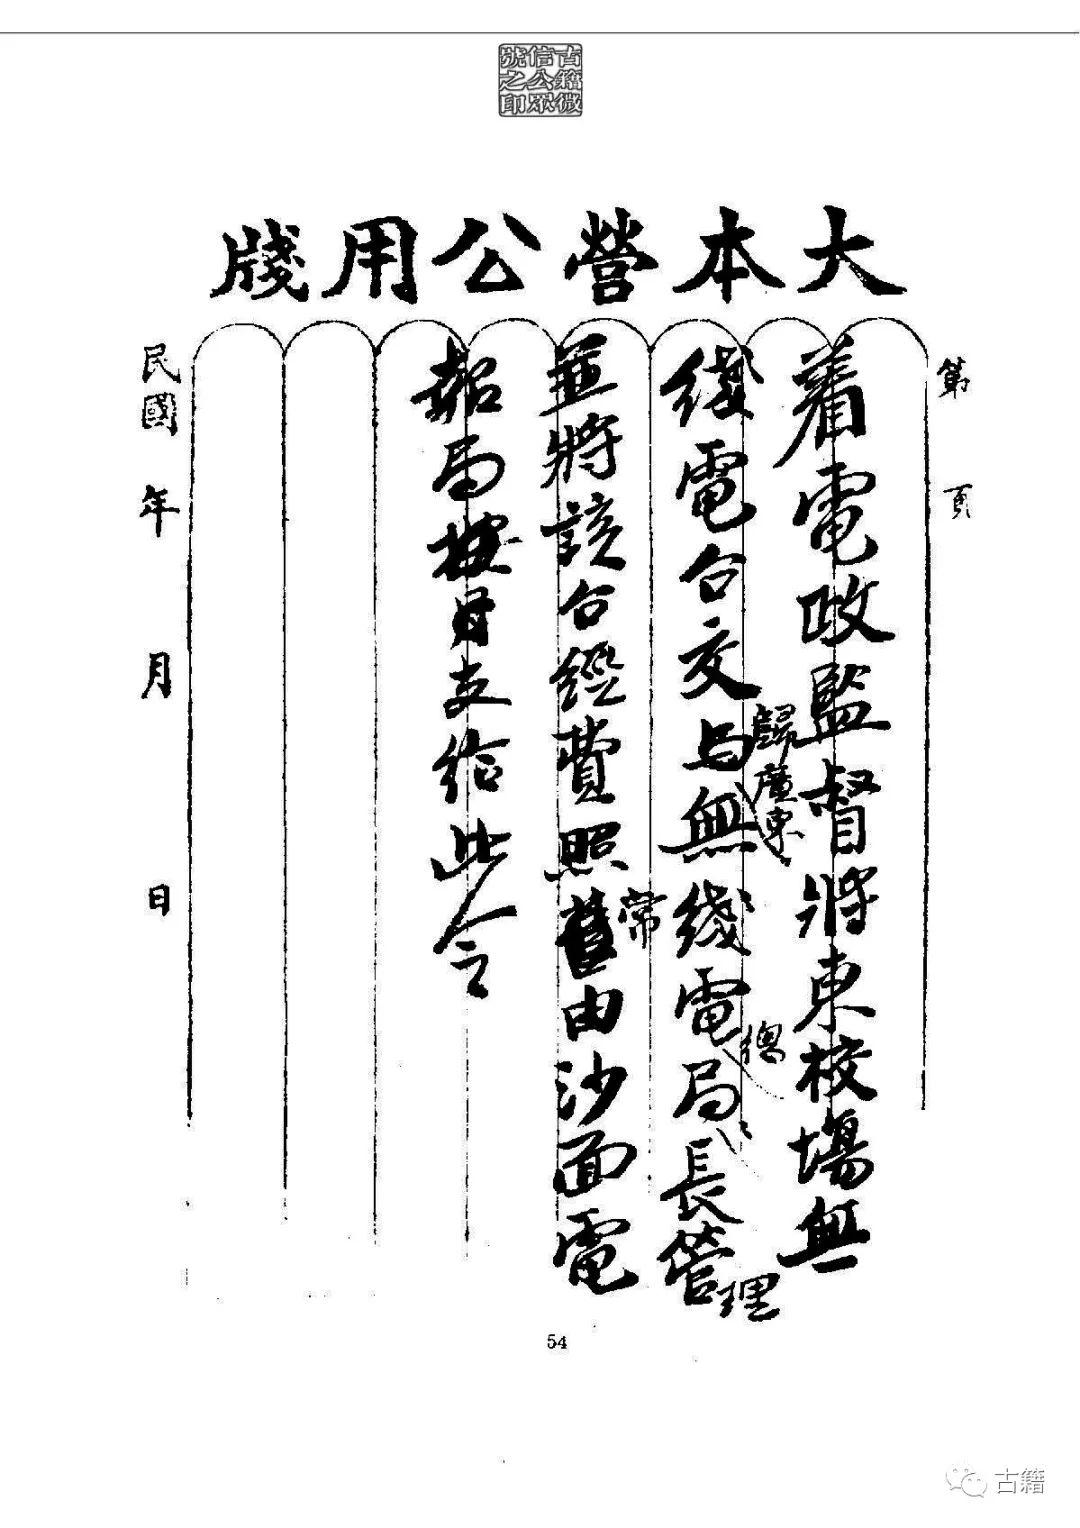 古籍微
信公眾
號之印
大本營公用牋
第 頁
着電政監督將東校場無
綫電台交与無綫電局長管理
歸廣東
總
並將該台經費照舊由沙面電
常
報局按月支給此令
民國 年 月 日
54
古籍